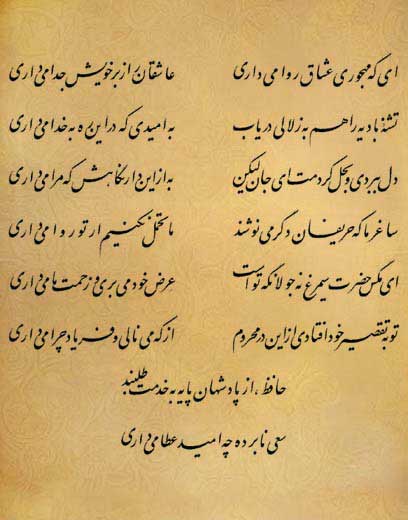 ای که مهجوری عشاق روا می داری عاشقان را ز بر خویش جدا می داری
تشنه بادیه را هم به زلالی دریاب به امیدی که در این ره به خدا می داری
دل ببردی و بحل کردمت ای جان لیکن به از این دار نگاهش که مرا می داری
ساغر ما که حریفان دگر می نوشند ما تحمل نکنیم ار تو روا می داری
ای مگس حضرت سیمرغ نه جولانگه توست عرض خود می بری و زحمت ما می داری
تو به تقصیر خود افتادی از این در محروم از که می نالی و فریاد چرا می داری
حافظ، از پادشهان پایه به خدمت طلبند
سعی نابرده چه امید عطا می داری